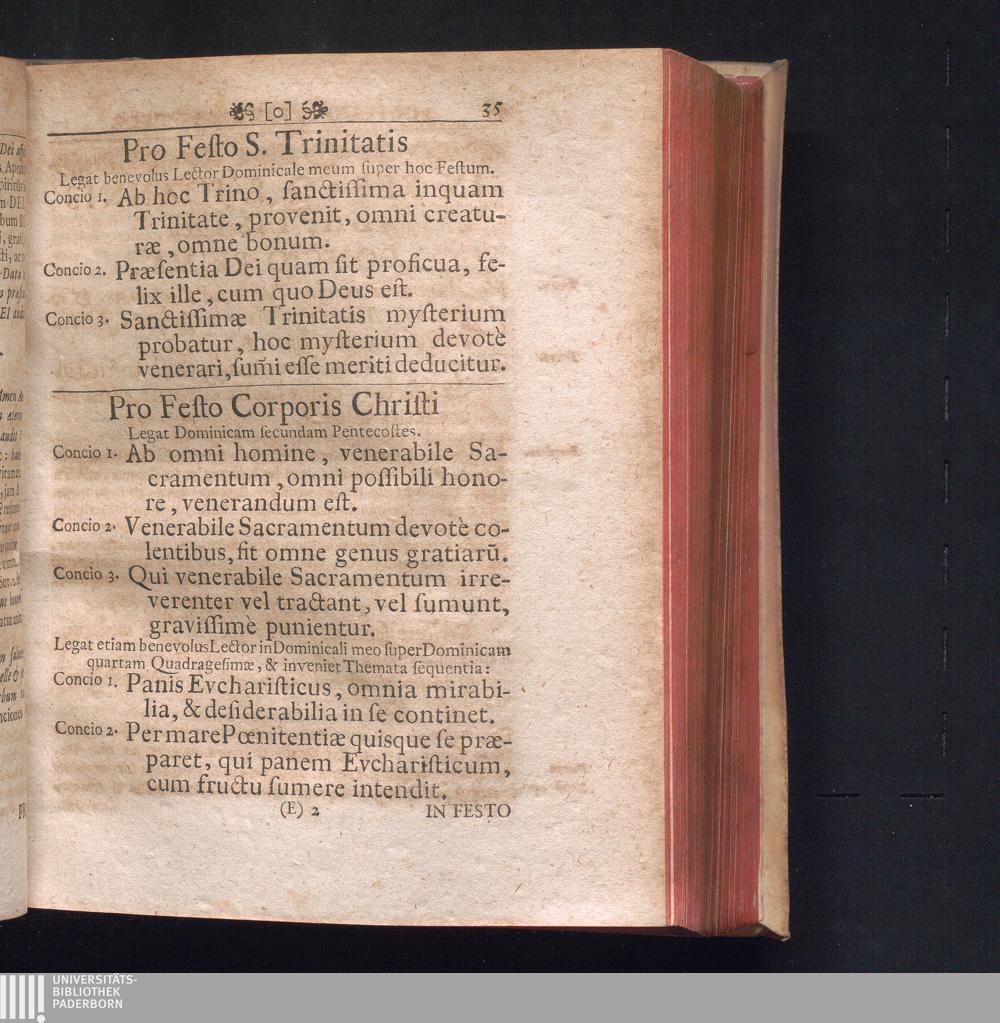 [0] 35
Pro Feſto S. Trinitatis
Legat benevolus Lector Dominicale meum ſuper hoc Feſtum.
Concio 1. Ab hoc Trino, ſanctiſſima inquam
Trinitate, provenit, omni creatu-
ræ, omne bonum.
Concio 2. Præſentia Dei quam ſit proficua, fe-
lix ille, cum quo Deus eſt.
Concio 3. Sanctiſſimæ Trinitatis myſterium
probatur, hoc myſterium devotè
venerari, ſum̃i eſſe meriti deducitur.
Pro Feſto Corporis Chriſti
Legat Dominicam ſecundam Pentecoſtes.
Concio 1. Ab omni homine, venerabile Sa-
cramentum, omni poſſibili hono-
re, venerandum eſt.
Concio 2. Venerabile Sacramentum devotè co-
lentibus, fit omne genus gratiarũ.
Concio 3. Qui venerabile Sacramentum irre-
verenter vel tractant, vel ſumunt,
graviſſimè punientur.
Legat etiam benevolus Lector in Dominicali meo ſuper Dominicam
quartam Quadrageſimæ, & inveniet Themata ſequentia:
Concio 1. Panis Evchariſticus, omnia mirabi-
lia, & deſiderabilia in ſe continet.
Concio 2. Per mare Pœnitentiæ quisque ſe præ-
paret, qui panem Evchariſticum,
cum fructu ſumere intendit.
(E) 2 IN FESTO
UNIVERSITÄTS-
BIBLIOTHEK
PADERBORN